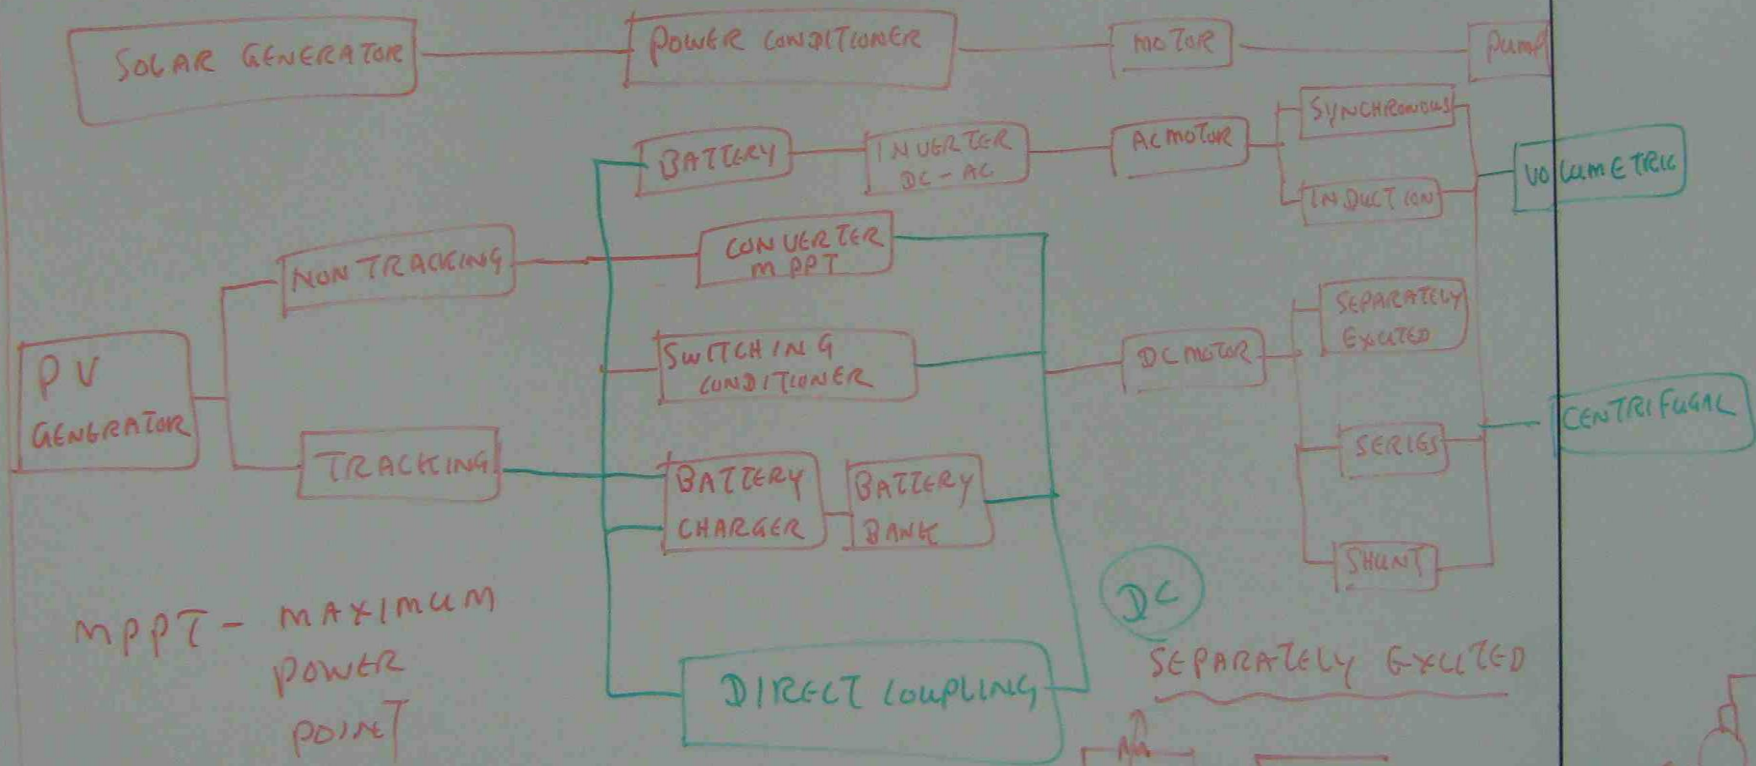 SOLAR GENERATOR
POWER CONDITIONER
MOTOR
PUMP
BATTERY
INVERTER
DC-AC
AC MOTOR
SYNCHRONOUS
INDUCTION
VOLUMETRIC
NON TRACKING
CONVERTER
MPPT
SWITCHING
CONDITIONER
DC MOTOR
SEPARATELY
EXCITED
PV
GENERATOR
TRACKING
BATTERY
CHARGER
BATTERY
BANK
SERIES
CENTRIFUGAL
SHUNT
MPPT - MAXIMUM
POWER
POINT
DIRECT COUPLING
DC
SEPARATELY EXCITED